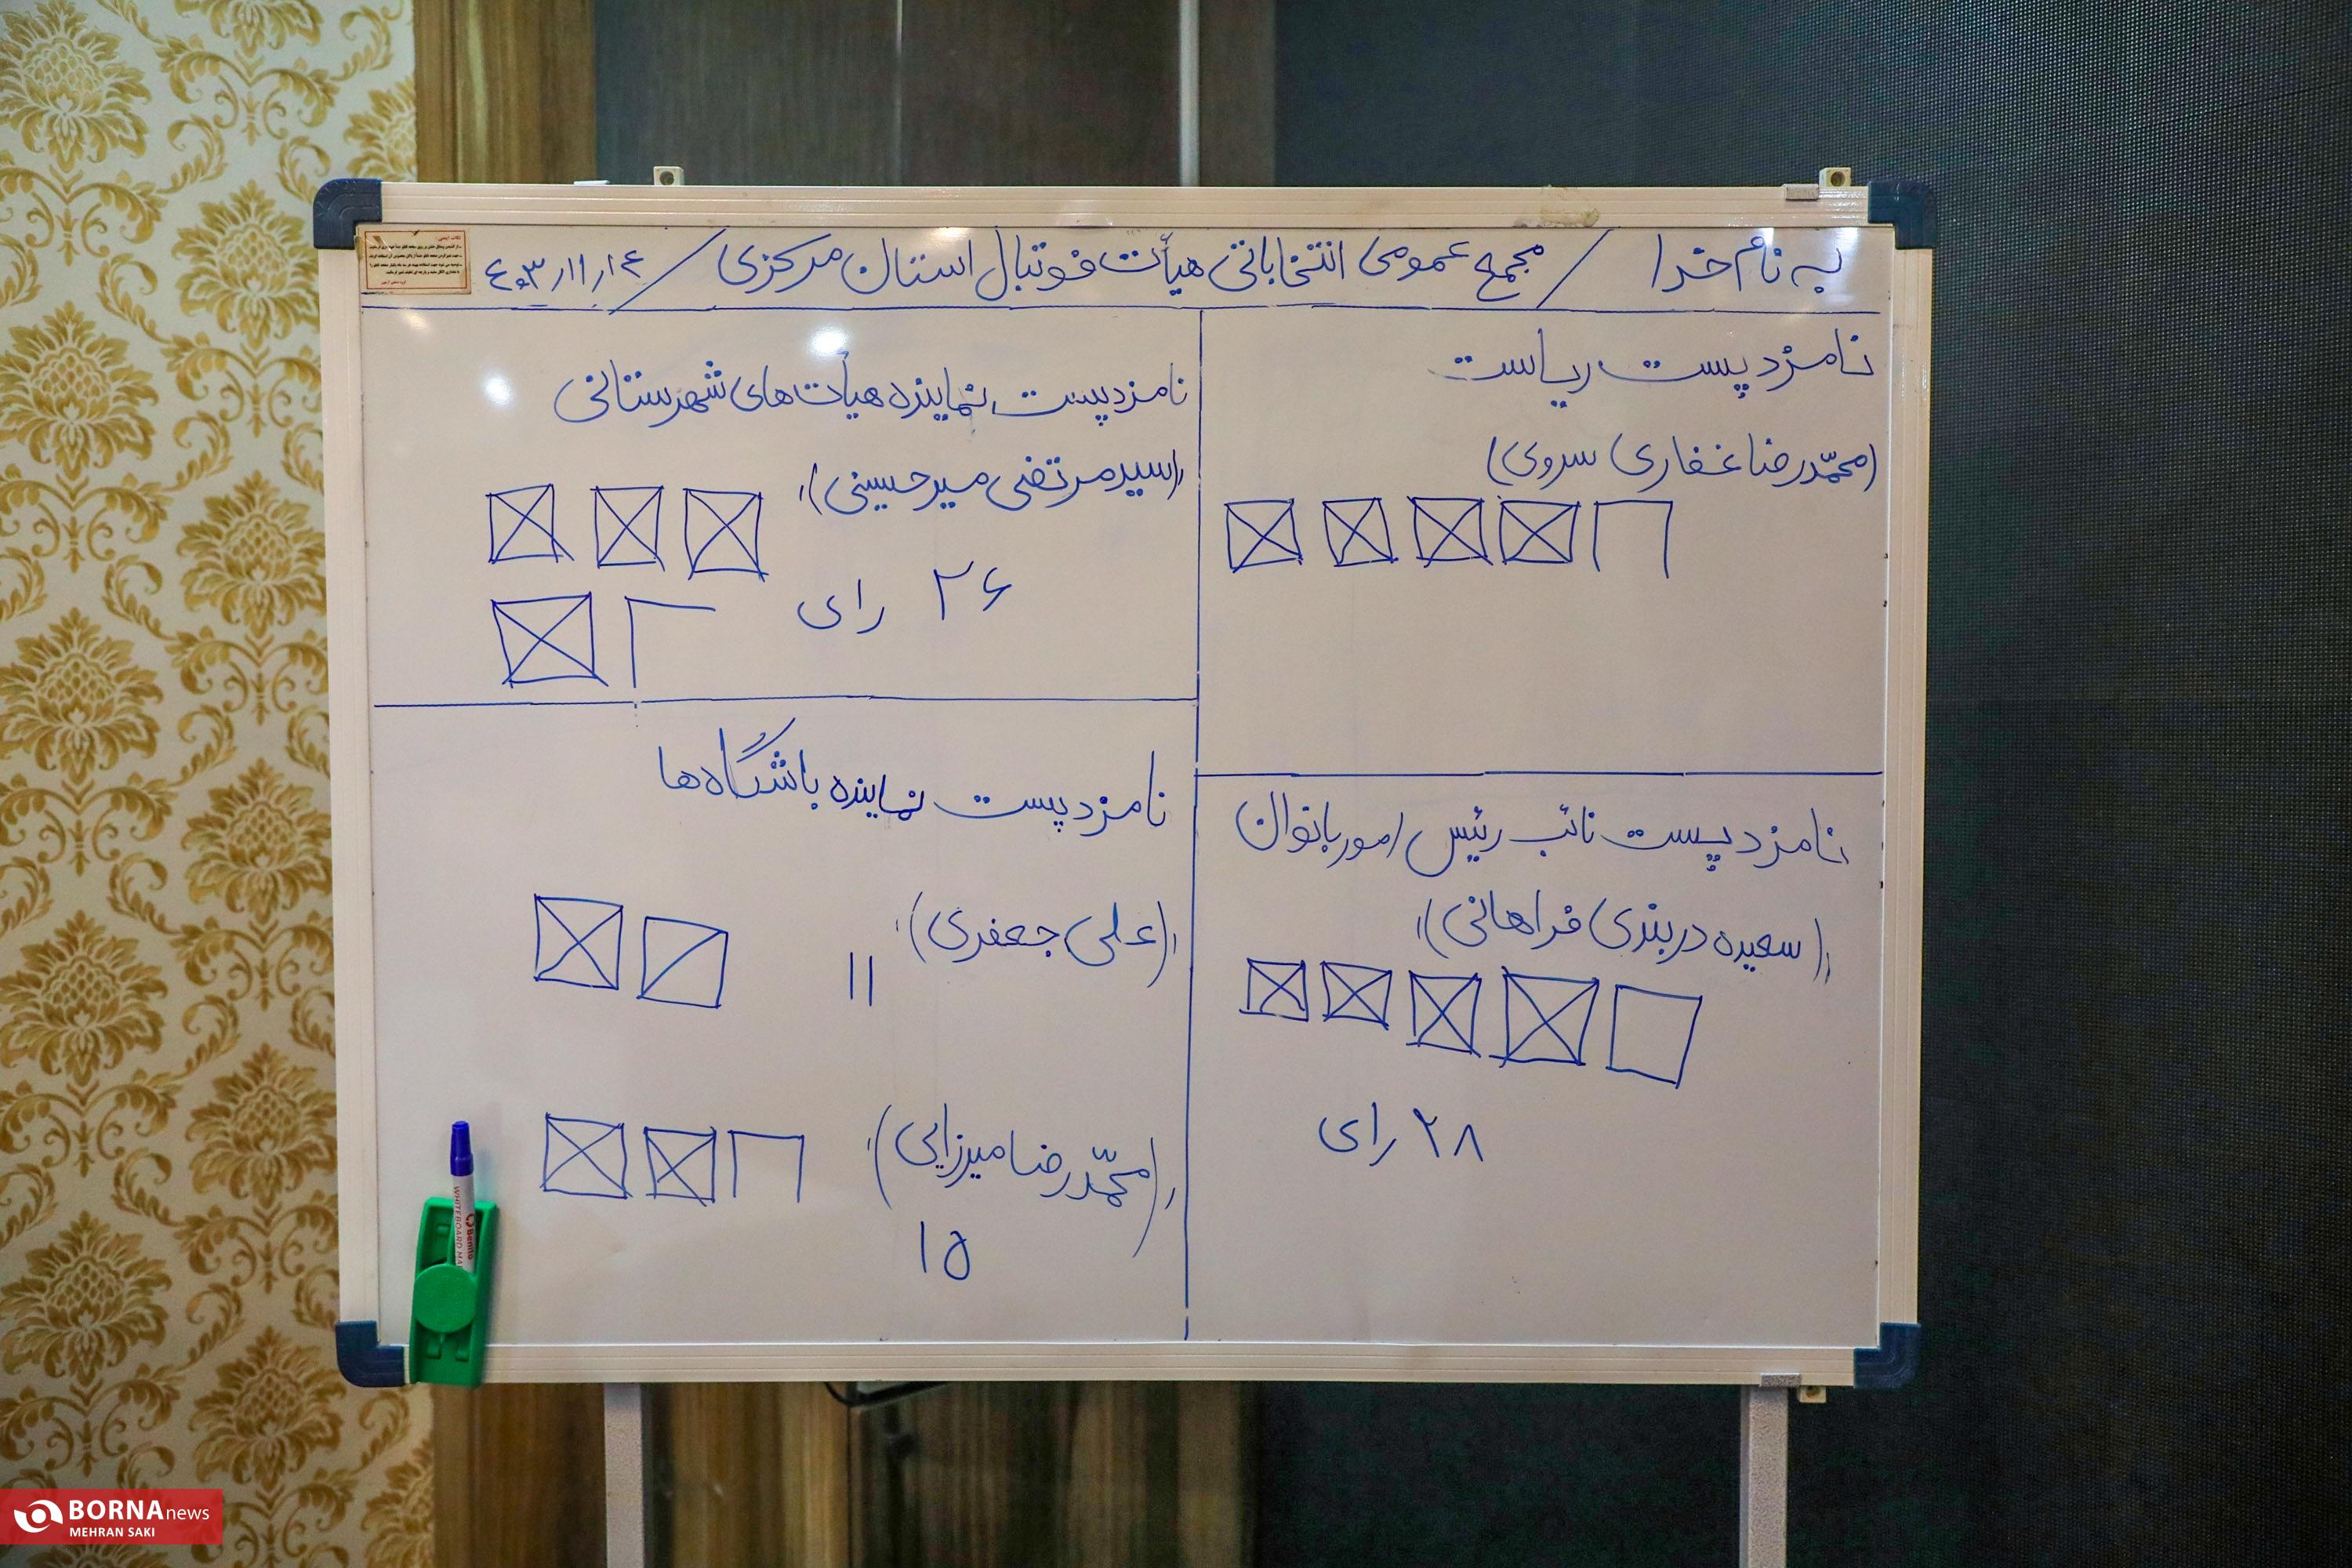 به نام خدا / مجمع عمومی انتخاباتی هیأت فوتبال استان مرکزی / ۴۰۳/۱۱/۱۴
نامزد پست ریاست
(محمّدرضا غفاری سروی)
نامزد پست نائب رئیس امور بانوان
"(سعیده دربندی فراهانی)"
۲۸ رای
نامزد پست نماینده هیأت های شهرستانی
"(سید مرتضی میرحسینی)"
۲۶ رای
نامزد پست نماینده باشگاه ها
"(علی جعفری)"
۱۱
"(محمّدرضا میرزایی)"
۱۵
WHITEBOARD MA
BORNAnews
MEHRAN SAKI